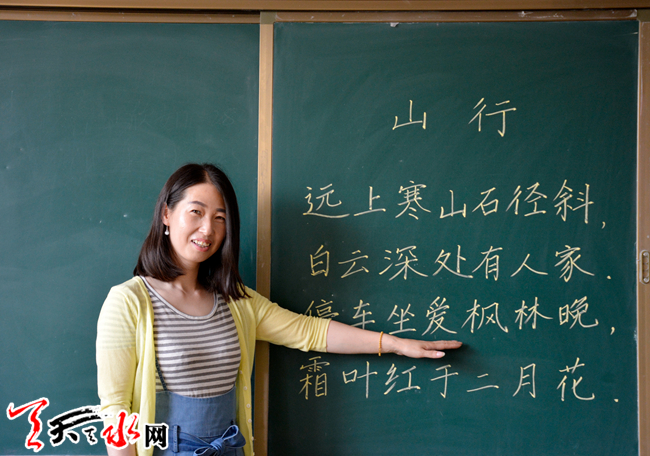 山行
远上寒山石径斜，
白云深处有人家.
停车坐爱枫林晚，
霜叶红于二月花.
天天天水网